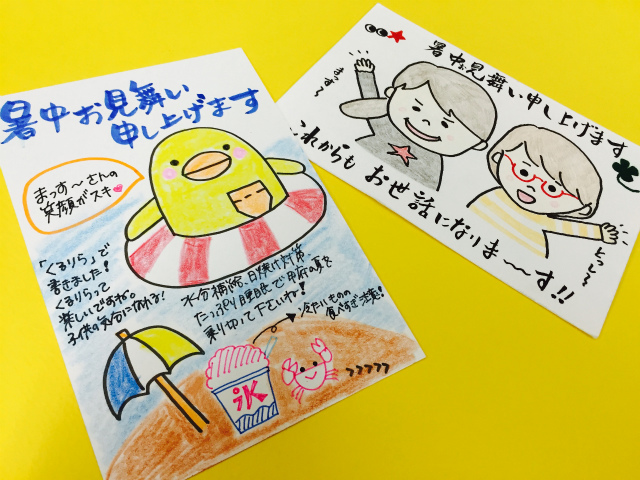 暑中お見舞い
申し上げます
まっす〜さんの
笑顔がスキ
「くるりら」で
書きました!
くるりらって
楽しいですね。
水分補給、日焼け対策
たっぷり睡眠で甲府の夏を
乗り切って下さいね!
冷たいものの
食べすぎ注意!
氷
暑中お見舞い申し上げます
まっす〜
これからも お世話になりま〜〜す!!
とっし〜